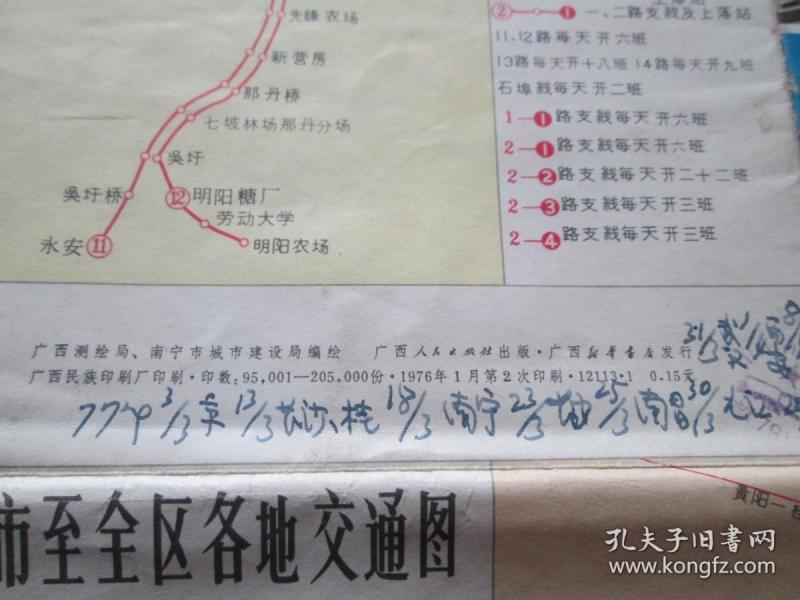 先鋒农场
新营房
那丹桥
七坡林场那丹分场
吳圩
吳圩桥
⑫明阳糖厂
劳动大学
明阳农场
永安⑪
上落站
②—❶一、二路支綫及上落站
11、12路每天开六班
13路每天开十八班 14路每天开九班
石埠綫每天开二班
1—❶路支綫每天开六班
2—❶路支綫每天开六班
2—❷路支綫每天开二十二班
2—❸路支綫每天开三班
2—❹路支綫每天开三班
广西测绘局、南宁市城市建设局编绘 广西人民出版社出版·广西新华書店发行
广西民族印刷厂印刷·印数:95,001—205,000份·1976年1月第2次印刷·12113·1 0.15元
77年 3/3 京 13/3 长沙、桂 18/3 南宁 23/3 25/3 南昌 30/3 九江
31/3
市至全区各地交通图
貴阳—桂
孔夫子旧書网
www.kongfz.com